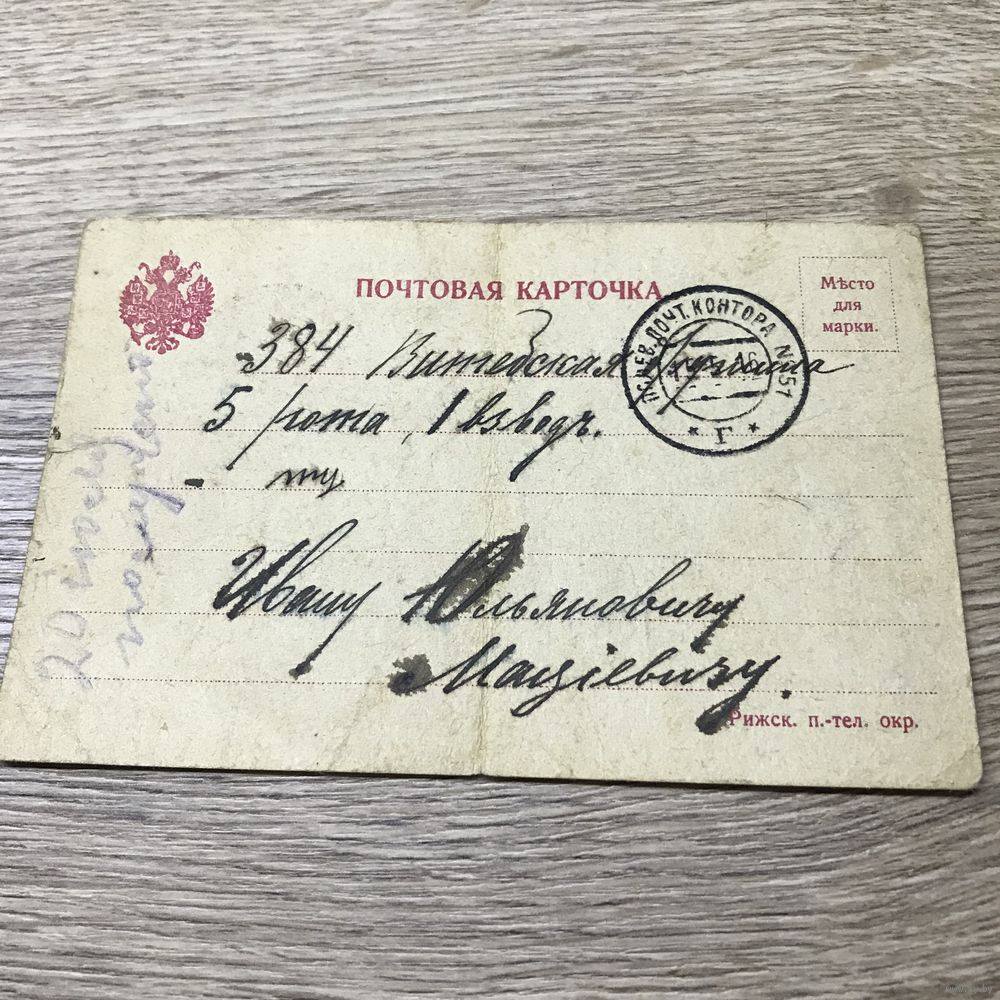 ПОЧТОВАЯ КАРТОЧКА
Мѣсто
для
марки.
ПОЧТ. КОНТОРА № 151
* Г *
384 Витебская дружина
5 рота, 1 взводъ.
Ивану Юльяновичу
Мацiевичу.
Рижск. п.-тел. окр.
20 июля